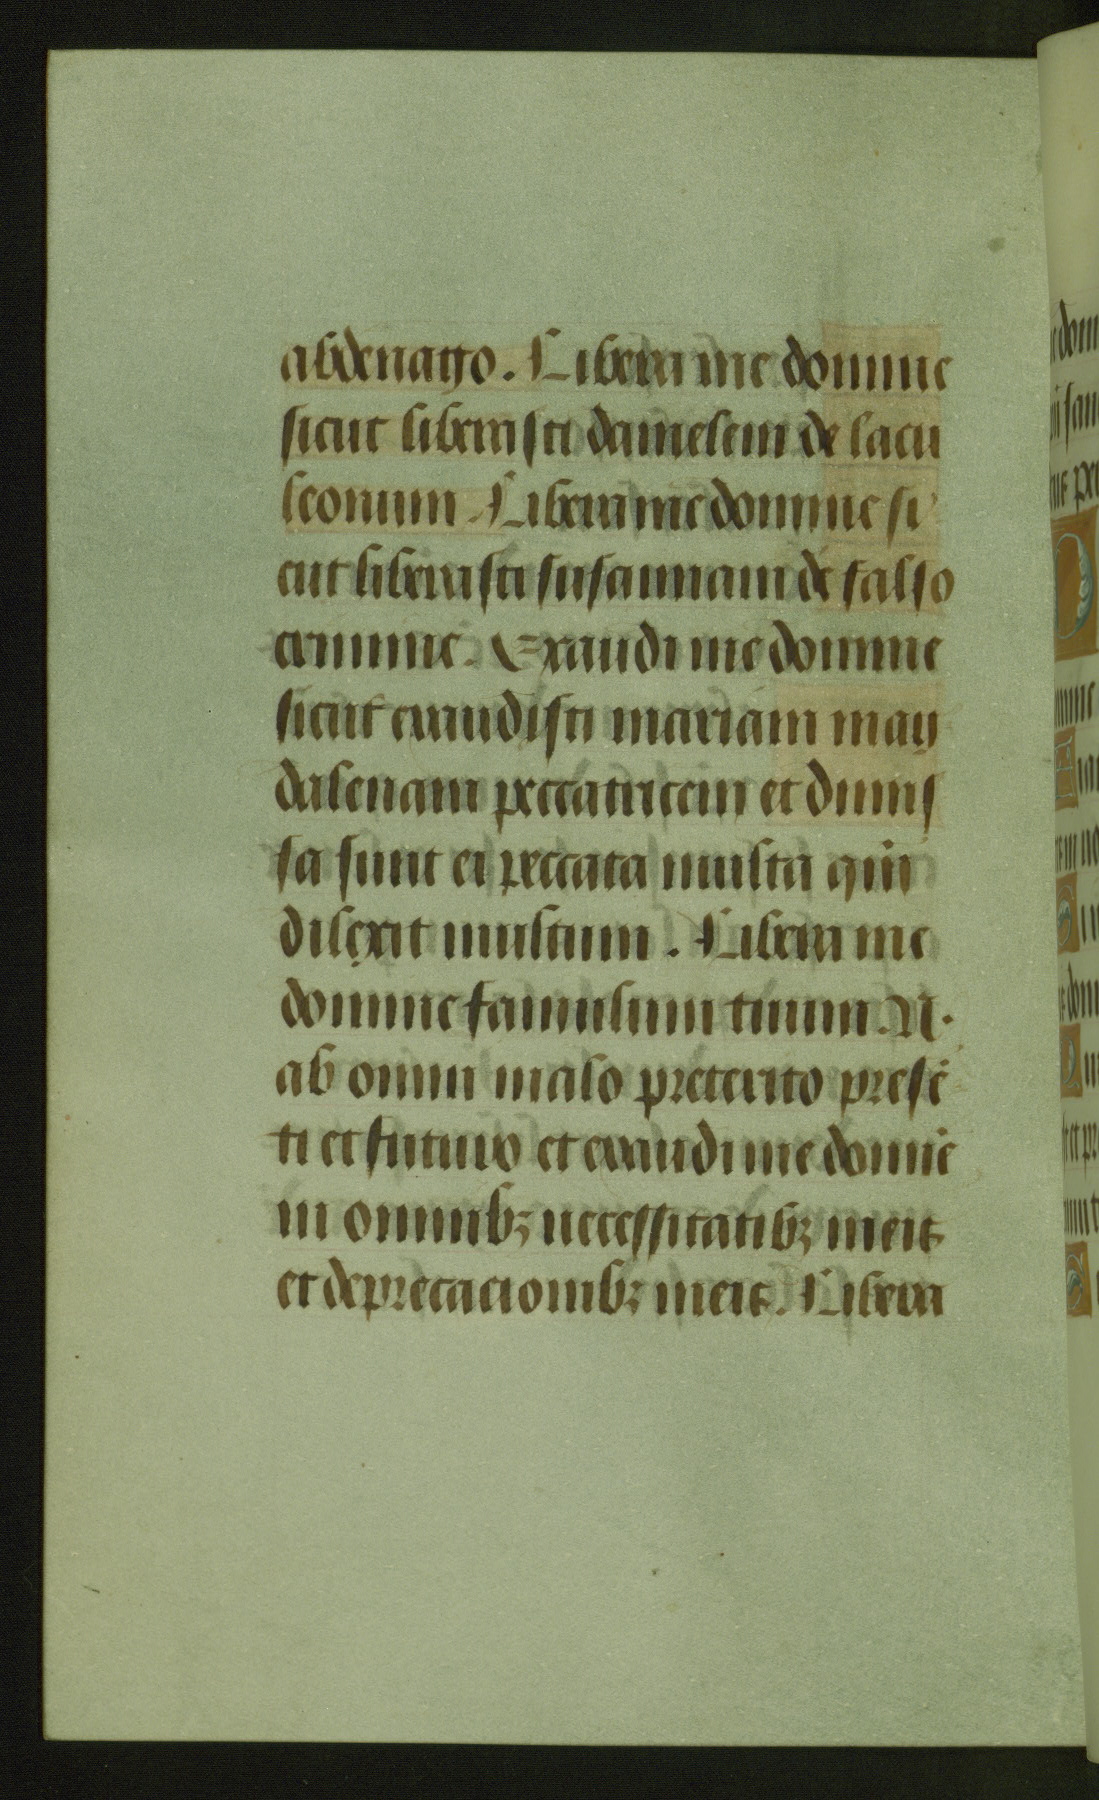 abdenago. Libera me domine
sicut liberasti danielem de lacu
leonum. Libera me domine si
cut liberasti susannam de falso
crimine. Exaudi me domine
sicut exaudisti mariam mag
dalenam peccatricem et dimis
sa sunt ei peccata multa qm̄
dilexit multum. Libera me
domine famulum tuum .N.
ab omni malo preterito presē
ti et futuro et exaudi me domīe
in omnibꝫ necessitatibꝫ meis
et deprecacionibꝫ meis. Libera